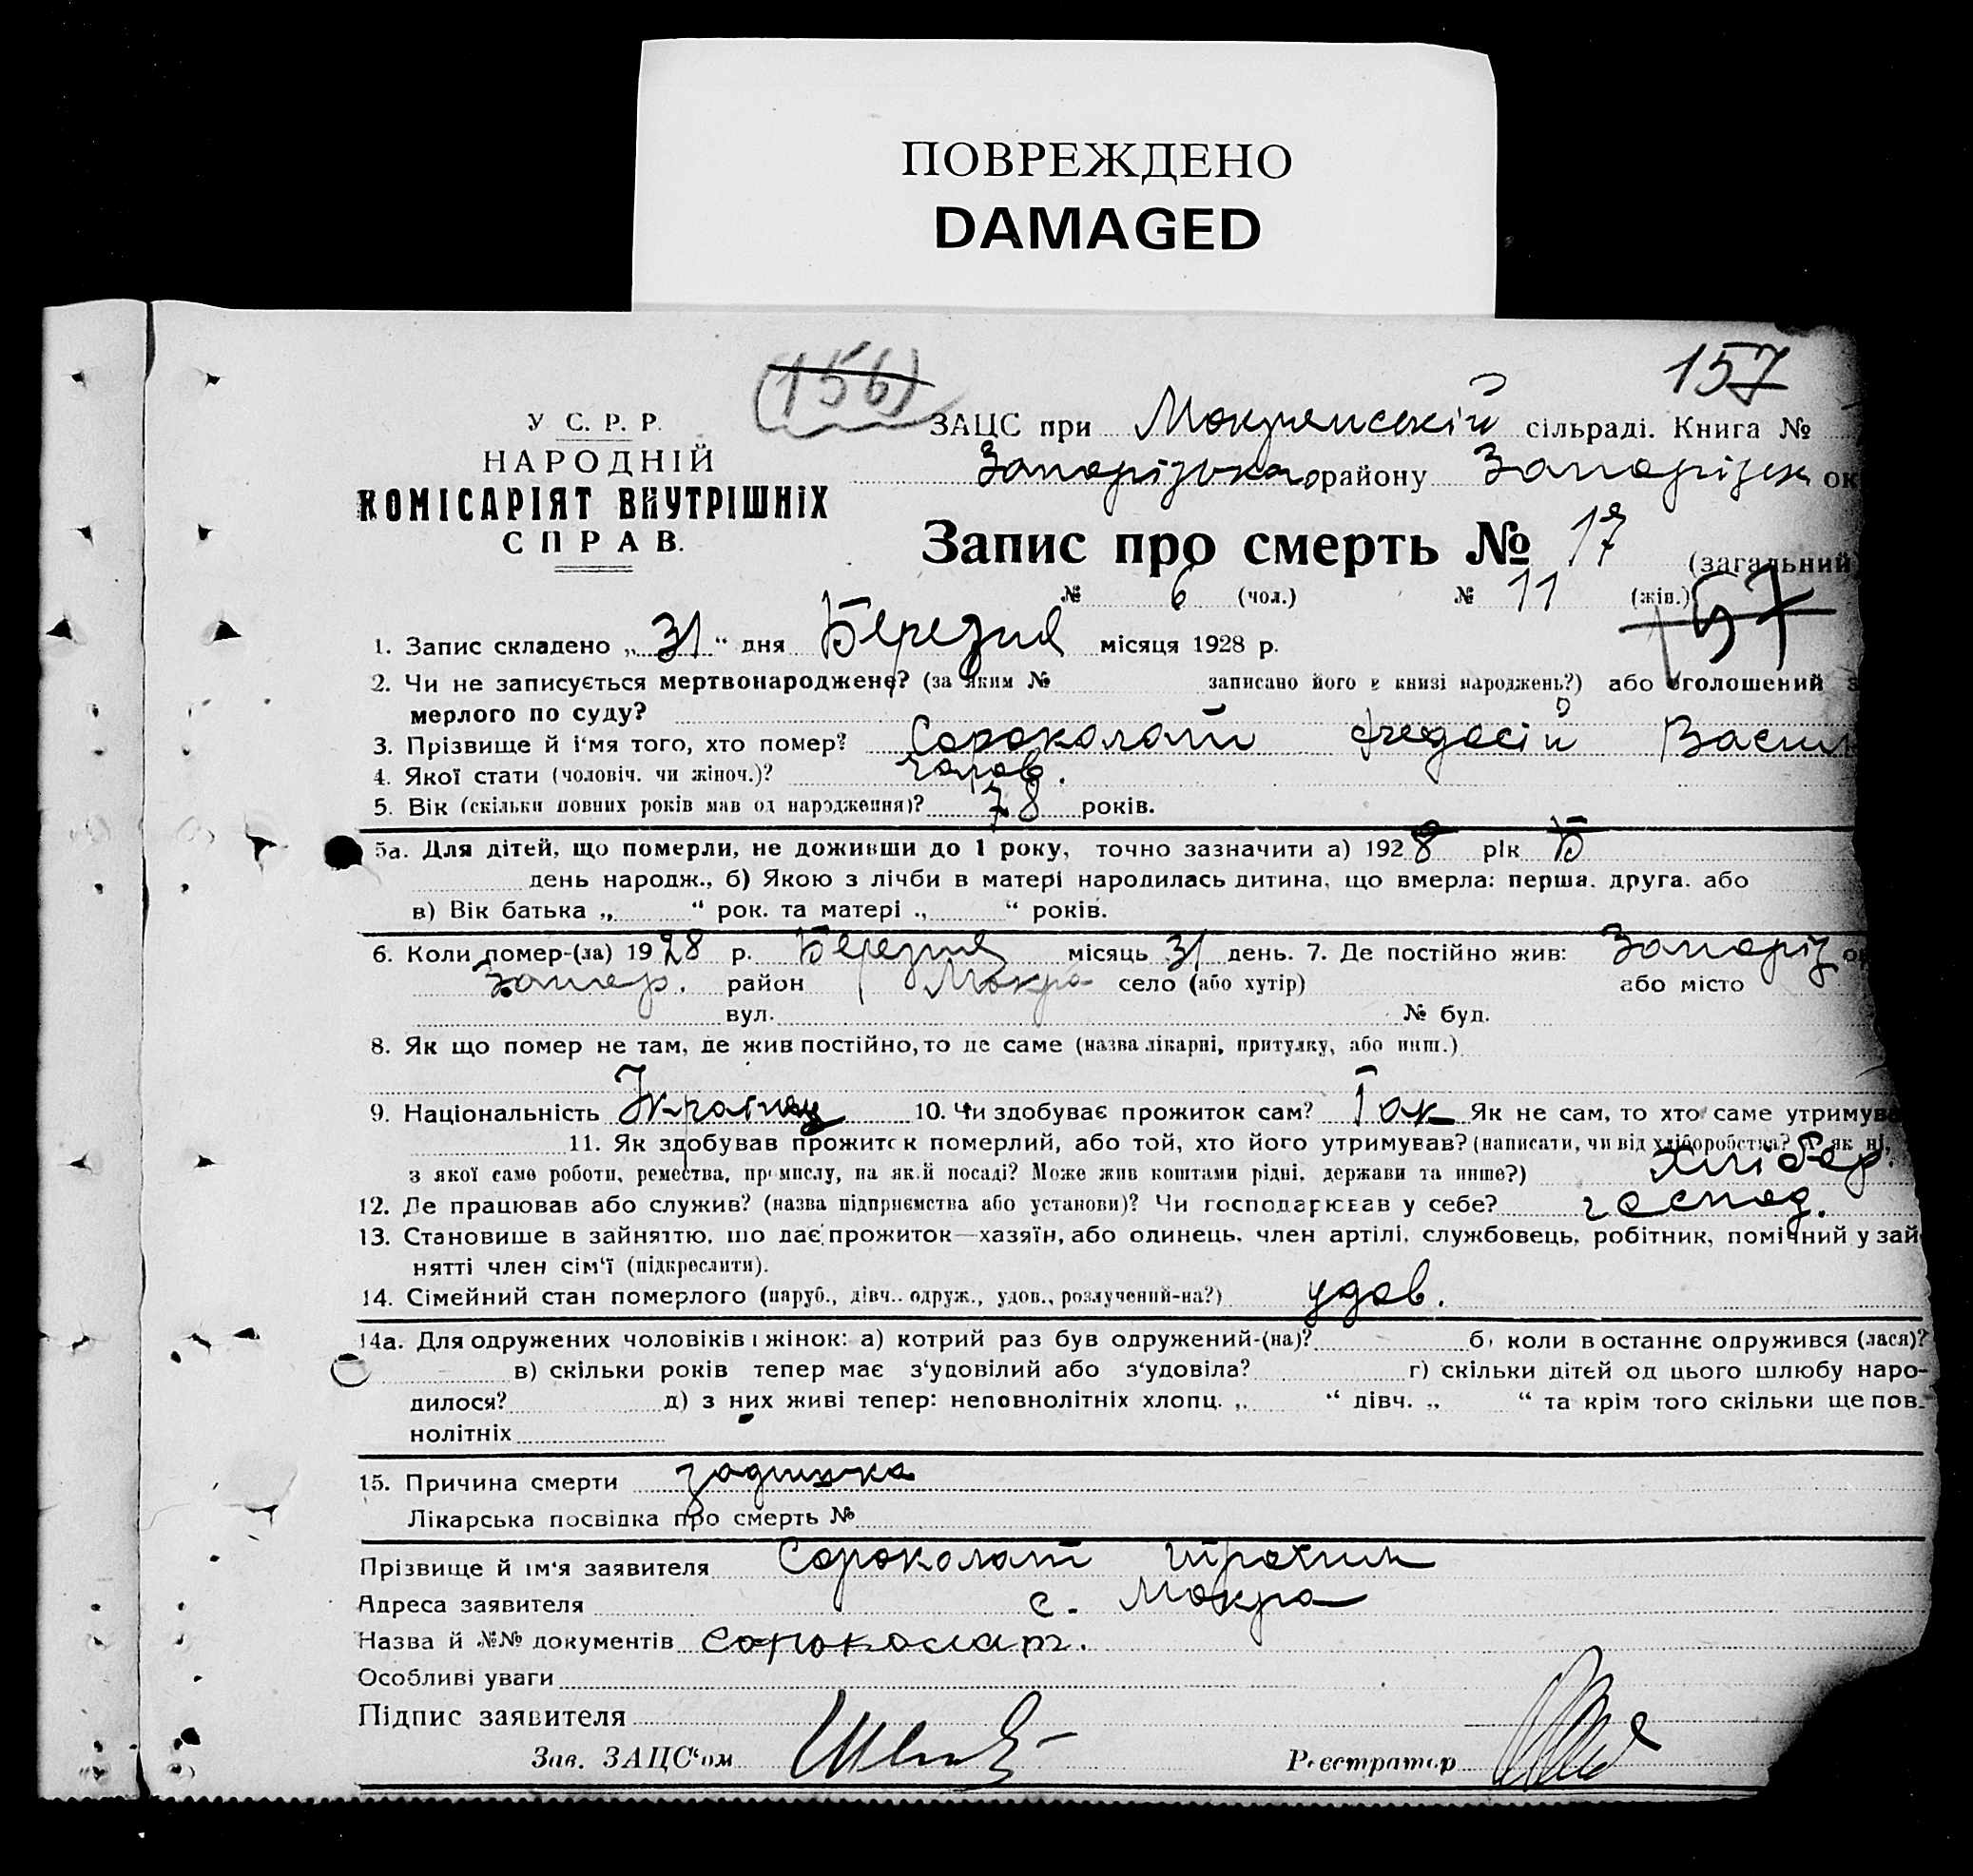 ПОВРЕЖДЕНО
DAMAGED
157
(156)
У С. Р. Р.
НАРОДНІЙ
КОМІСАРІЯТ ВНУТРІШНІХ
СПРАВ.
ЗАЦС при Мокрянській сільраді. Книга №
Запорізького району Запорізьк ок
Запис про смерть № 17 (загальний)
№ 6 (чол.) № 11 (жін.)
157
1. Запис складено „31“ дня Березня місяця 1928 р.
2. Чи не записується мертвонароджене? (за яким № записано його в книзі народжень?) або оголошений з
мерлого по суду?
3. Прізвище й і'мя того, хто помер? Сороколат Федосій Васил
4. Якої стати (чоловіч. чи жіноч.)? чолов.
5. Вік (скільки повних років мав од народження)? 78 років.
5а. Для дітей, що померли, не доживши до 1 року, точно зазначити а) 1928 рік Б
день народж., б) Якою з лічби в матері народилась дитина, що вмерла: перша. друга. або
в) Вік батька „ “ рок. та матері „ “ років.
6. Коли помер-(ла) 1928 р. Березня місяць 31 день. 7. Де постійно жив: Запоріз ок
Запор. район Мокра село (або хутір) або місто
вул. № буд.
8. Як що помер не там, де жив постійно, то де саме (назва лікарні, притулку, або инш.)
9. Національність Українец 10. Чи здобуває прожиток сам? Так Як не сам, то хто саме утримува
11. Як здобував прожиток померлий, або той, хто його утримував? (написати, чи від хліборобства? а як ні,
з якої саме роботи, ремества, промислу, на якій посаді? Може жив коштами рідні, держави та инше?) хлібор.
12. Де працював або служив? (назва підприємства або установи)? Чи господарював у себе? господ.
13. Становище в зайняттю, що дає прожиток—хазяїн, або одинець, член артілі, службовець, робітник, помічний у зай
нятті член сім'ї (підкреслити).
14. Сімейний стан померлого (паруб., дівч.. одруж., удов., розлучений-на?) удов.
14а. Для одружених чоловіків і жінок: а) котрий раз був одружений-(на)? б) коли в останнє одружився (лася)?
в) скільки років тепер має з'удовілий або з'удовіла? г) скільки дітей од цього шлюбу наро-
дилося? д) з них живі тепер: неповнолітніх хлопц. „ “ дівч. „ “ та крім того скільки ще пов-
нолітніх
15. Причина смерти задишка
Лікарська посвідка про смерть №
Прізвище й ім'я заявителя Сороколат Трохим
Адреса заявителя с. Мокра
Назва й №№ документів сороколат.
Особливі уваги
Підпис заявителя
Зав. ЗАЦС'ом
Реєстратор